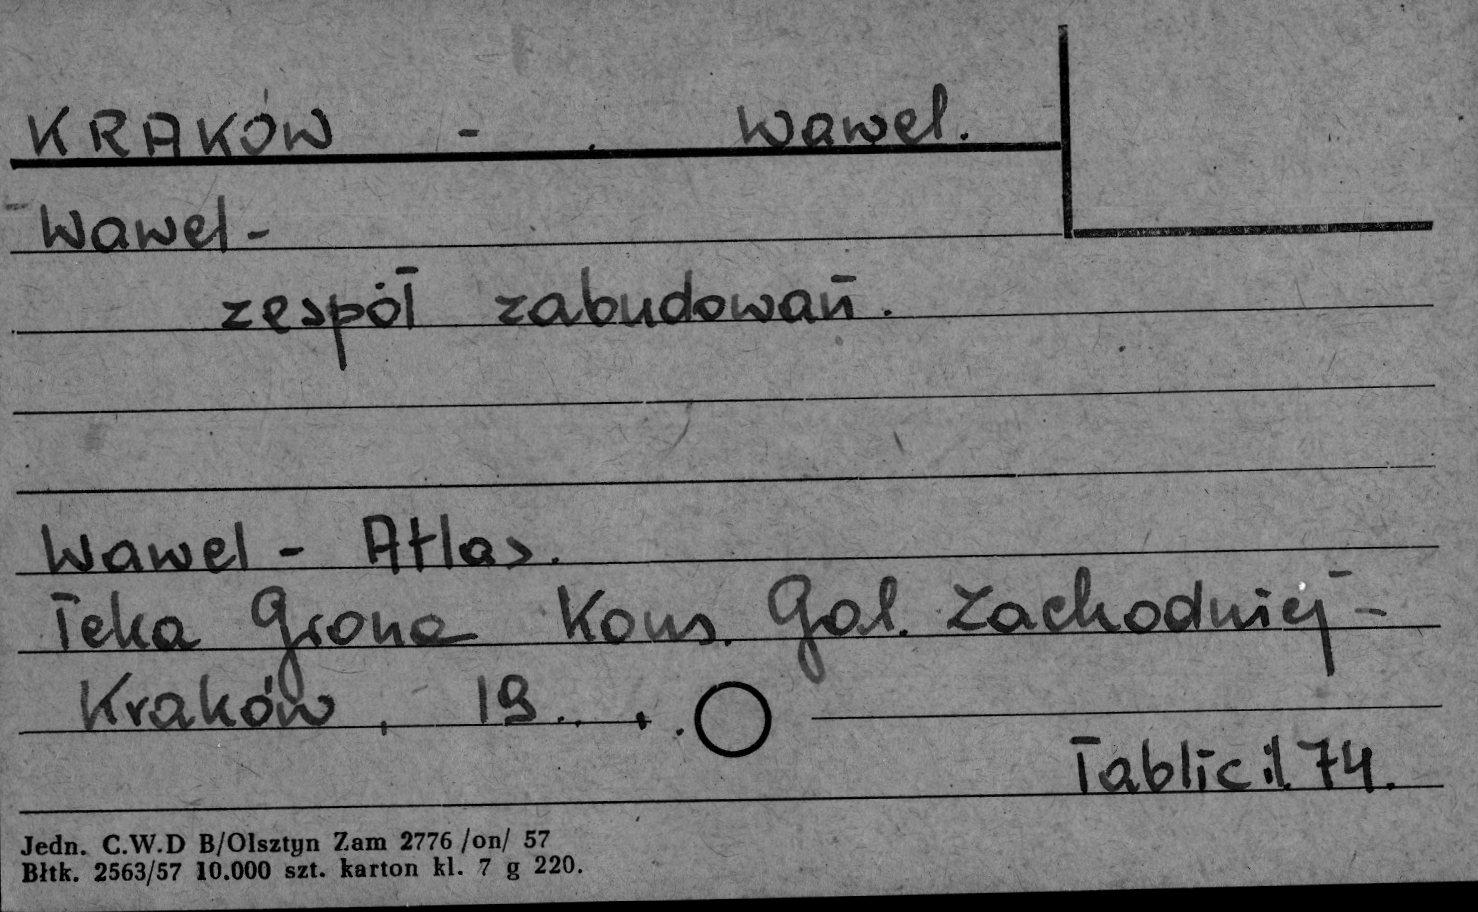 KRAKÓW - . Wawel.
Wawel -
zespół zabudowań.
Wawel - Atlas.
Teka Grona Kons. Gal. Zachodniej -
Kraków, 19....
Tablic il. 74.
Jedn. C.W.D B/Olsztyn Zam 2776 /on/ 57
Bltk. 2563/57 10.000 szt. karton kl. 7 g 220.